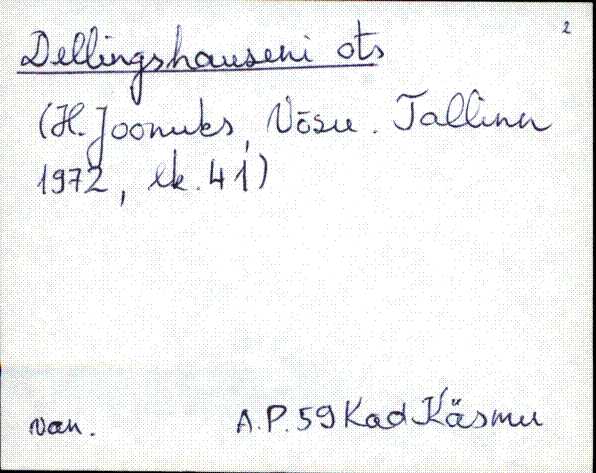 2
Dellingshauseni ots
(H. Joonuks, Võsu. Tallinn
1972, lk. 41)
van. A.P. 59 Kad Käsmu